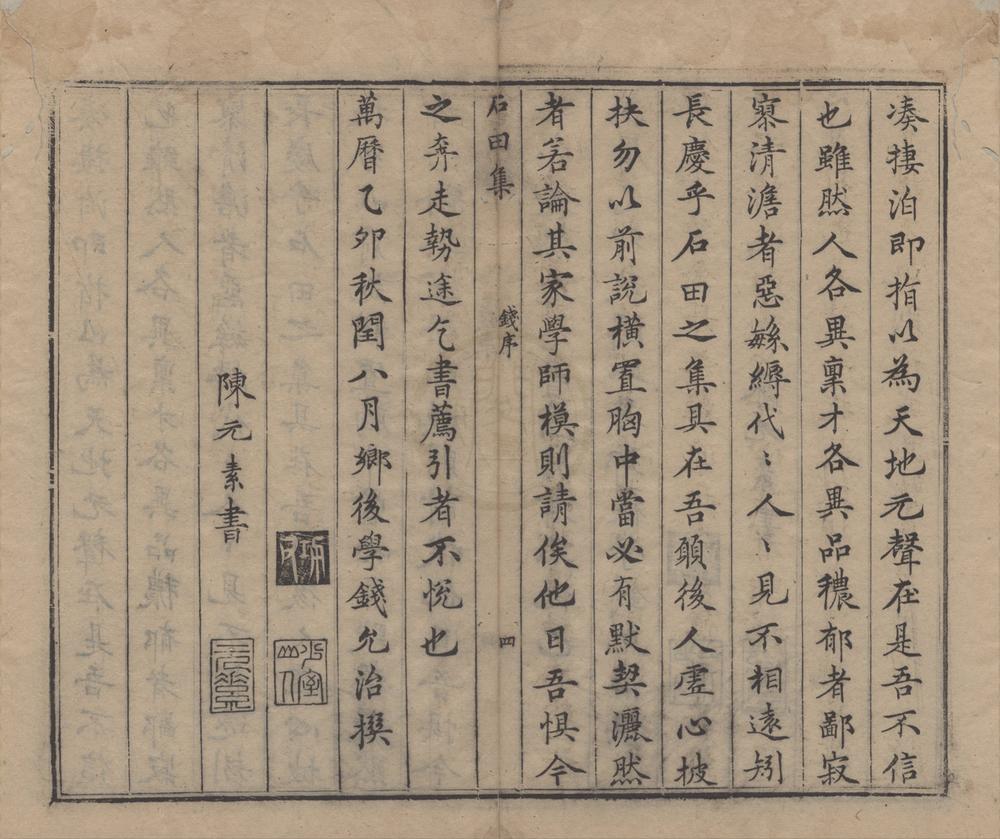 凑捿泊即指以為天地元聲在是吾不信
也雖然人各異稟才各異品穠郁者鄙寂
寥清澹者惡繇縟代〻人〻見不相遠矧
長慶乎石田之集具在吾願後人虛心披
抉勿以前說橫置胸中當必有默契灑然
者若論其家學師模則請俟他日吾惧今
石田集
錢序
四
之奔走勢途乞書薦引者不悅也
萬曆乙卯秋閏八月鄉後學錢允治撰
陳元素書